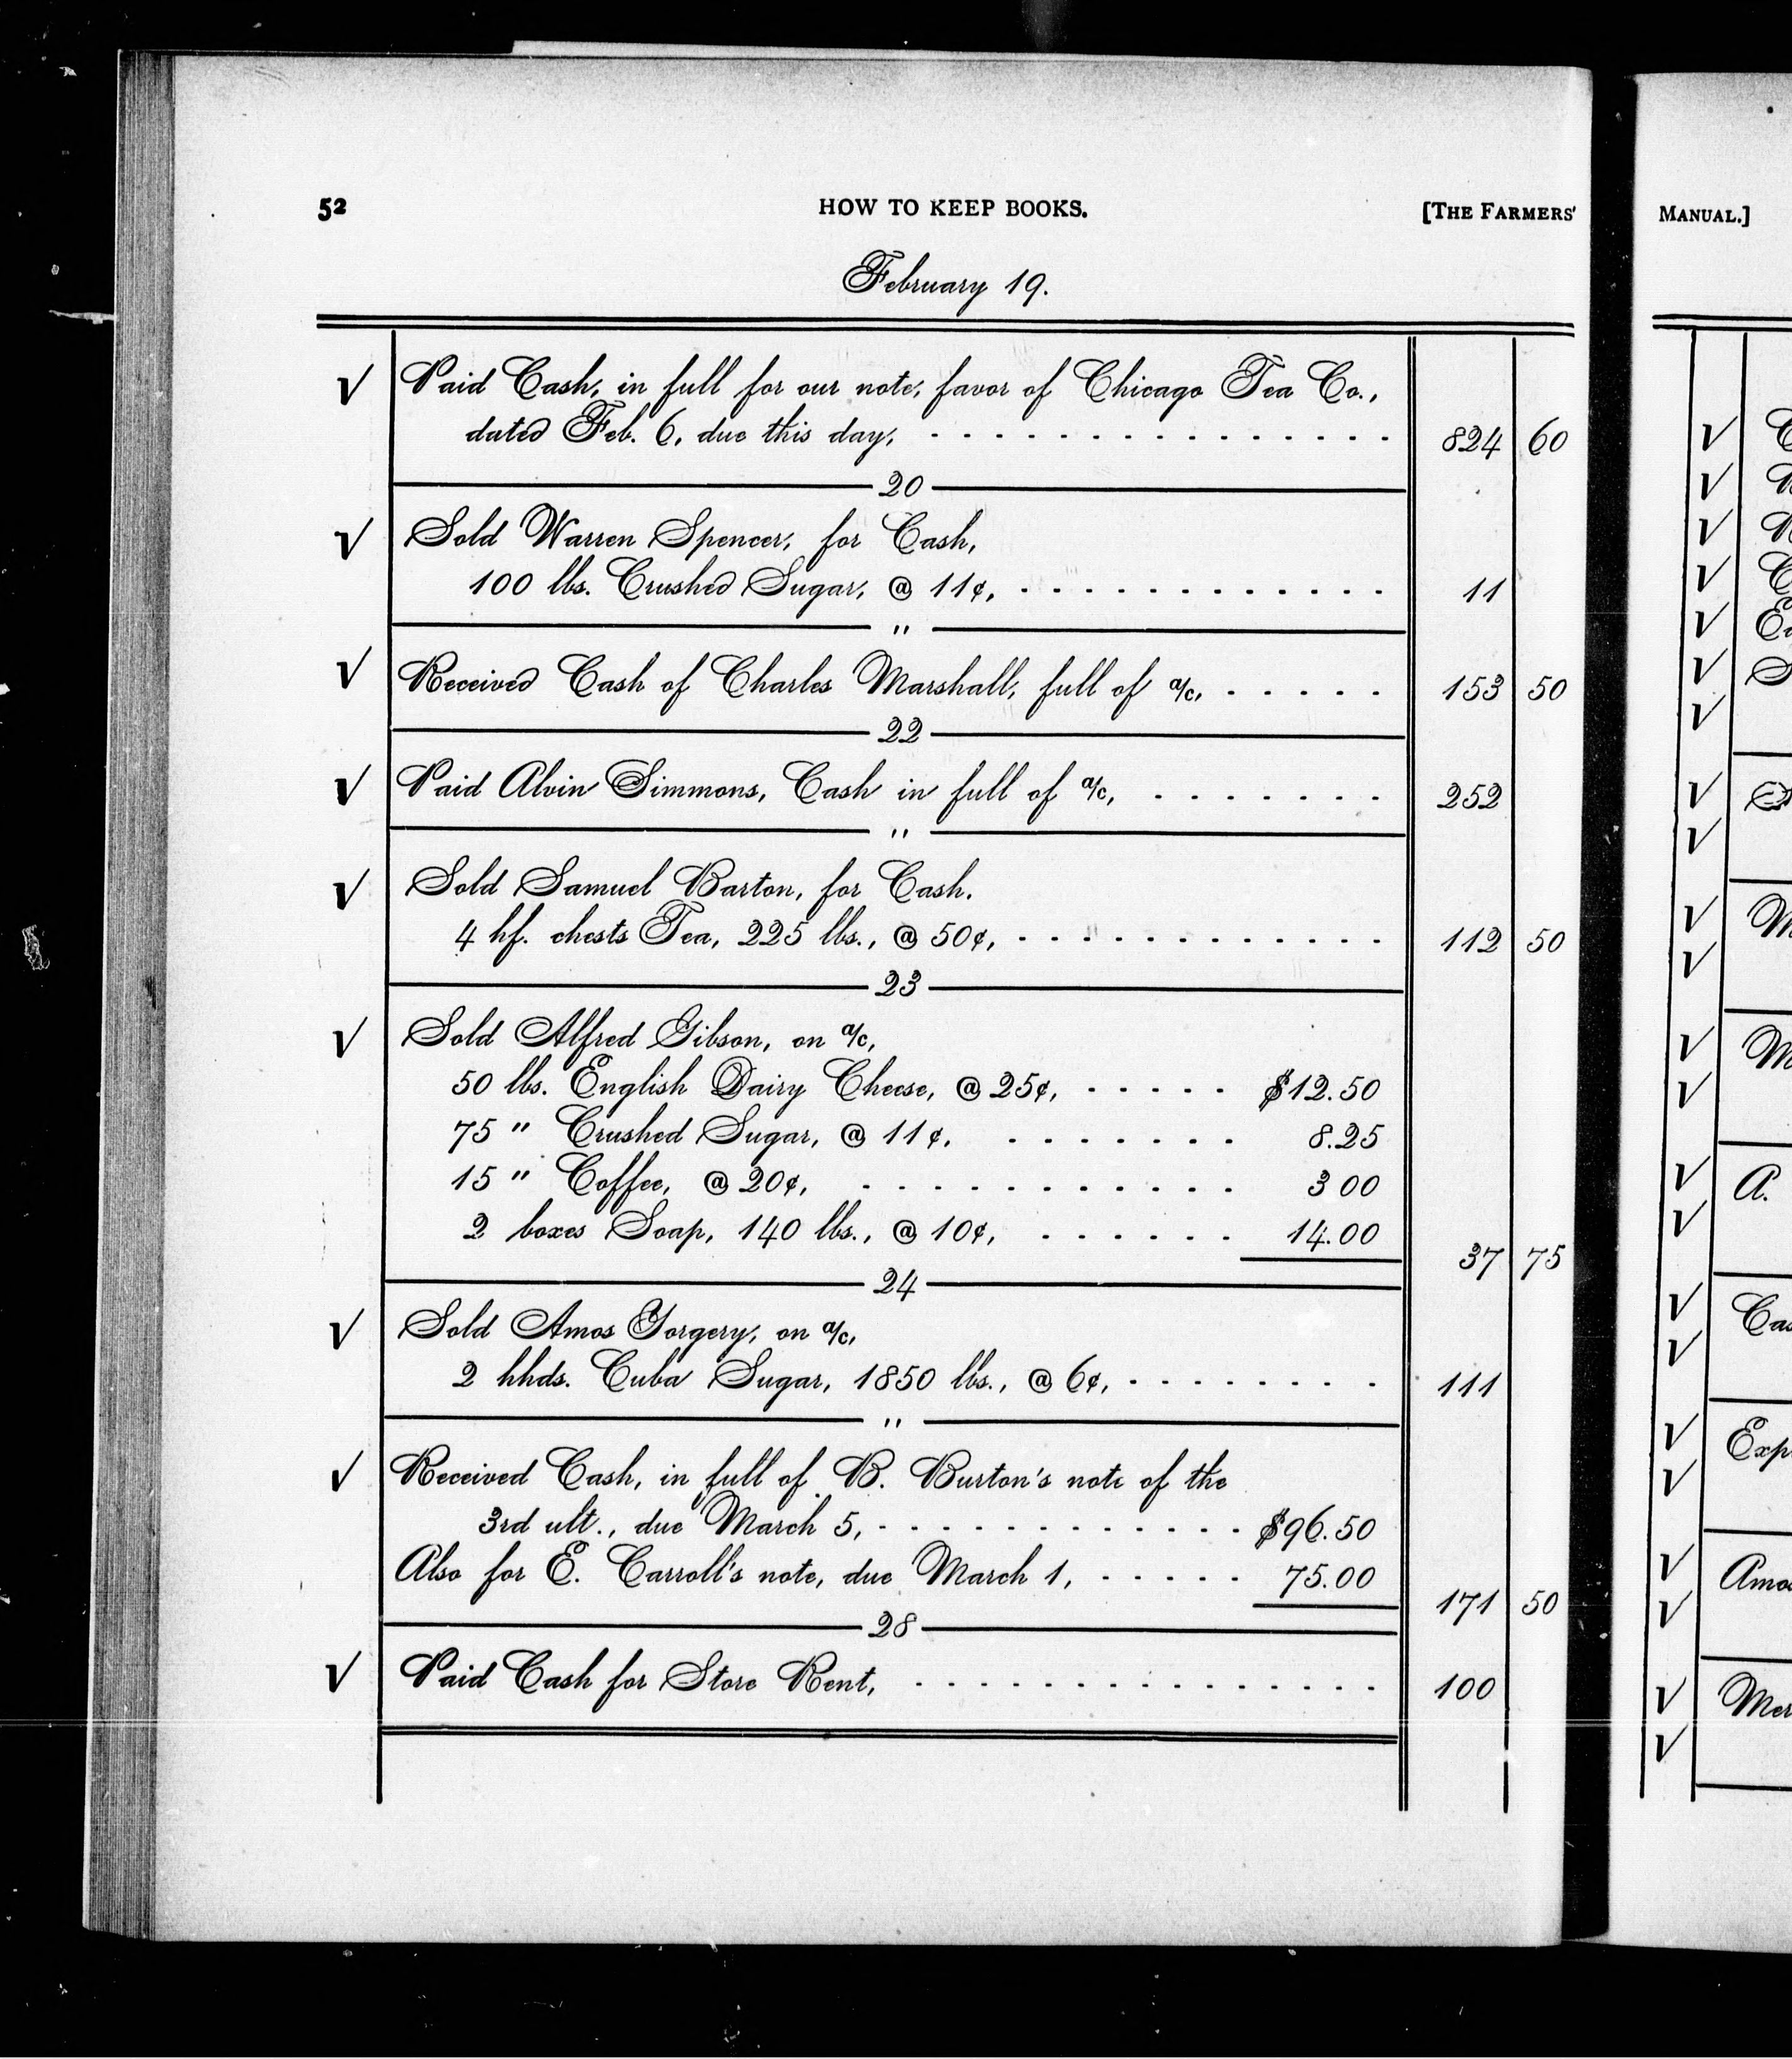 52 HOW TO KEEP BOOKS. [THE FARMERS'
February 19.
√ Paid Cash, in full for our note, favor of Chicago Tea Co.,
dated Feb. 6, due this day, - - - - - - - - - - - - - - - 824 60
20
√ Sold Warren Spencer, for Cash,
100 lbs. Crushed Sugar, @ 11¢, - - - - - - - - - - - - 11
"
√ Received Cash of Charles Marshall, full of a/c, - - - - - 153 50
22
√ Paid Alvin Simmons, Cash in full of a/c, - - - - - - - 252
"
√ Sold Samuel Barton, for Cash.
4 hf. chests Tea, 225 lbs., @ 50¢, - - - - - - - - - - - - 112 50
23
√ Sold Alfred Gibson, on a/c,
50 lbs. English Dairy Cheese, @ 25¢, - - - - - $12.50
75 " Crushed Sugar, @ 11¢. - - - - - - - 8.25
15 " Coffee, @ 20¢, - - - - - - - - - - - - 3 00
2 boxes Soap, 140 lbs., @ 10¢, - - - - - - 14.00
37 75
24
√ Sold Amos Gorgery, on a/c,
2 hhds. Cuba Sugar, 1850 lbs., @ 6¢, - - - - - - - - 111
"
√ Received Cash, in full of B. Burton's note of the
3rd ult., due March 5, - - - - - - - - - - - - $96.50
Also for E. Carroll's note, due March 1, - - - - - 75.00
171 50
28
√ Paid Cash for Store Rent, - - - - - - - - - - - - - - - - 100
MANUAL.]
√
√
√
√
√
√
√
√
√
√ M
√
√ M
√
√ A.
√
√ Cas
√
√ Exp
√
√ Amo
√
√ Mer
√